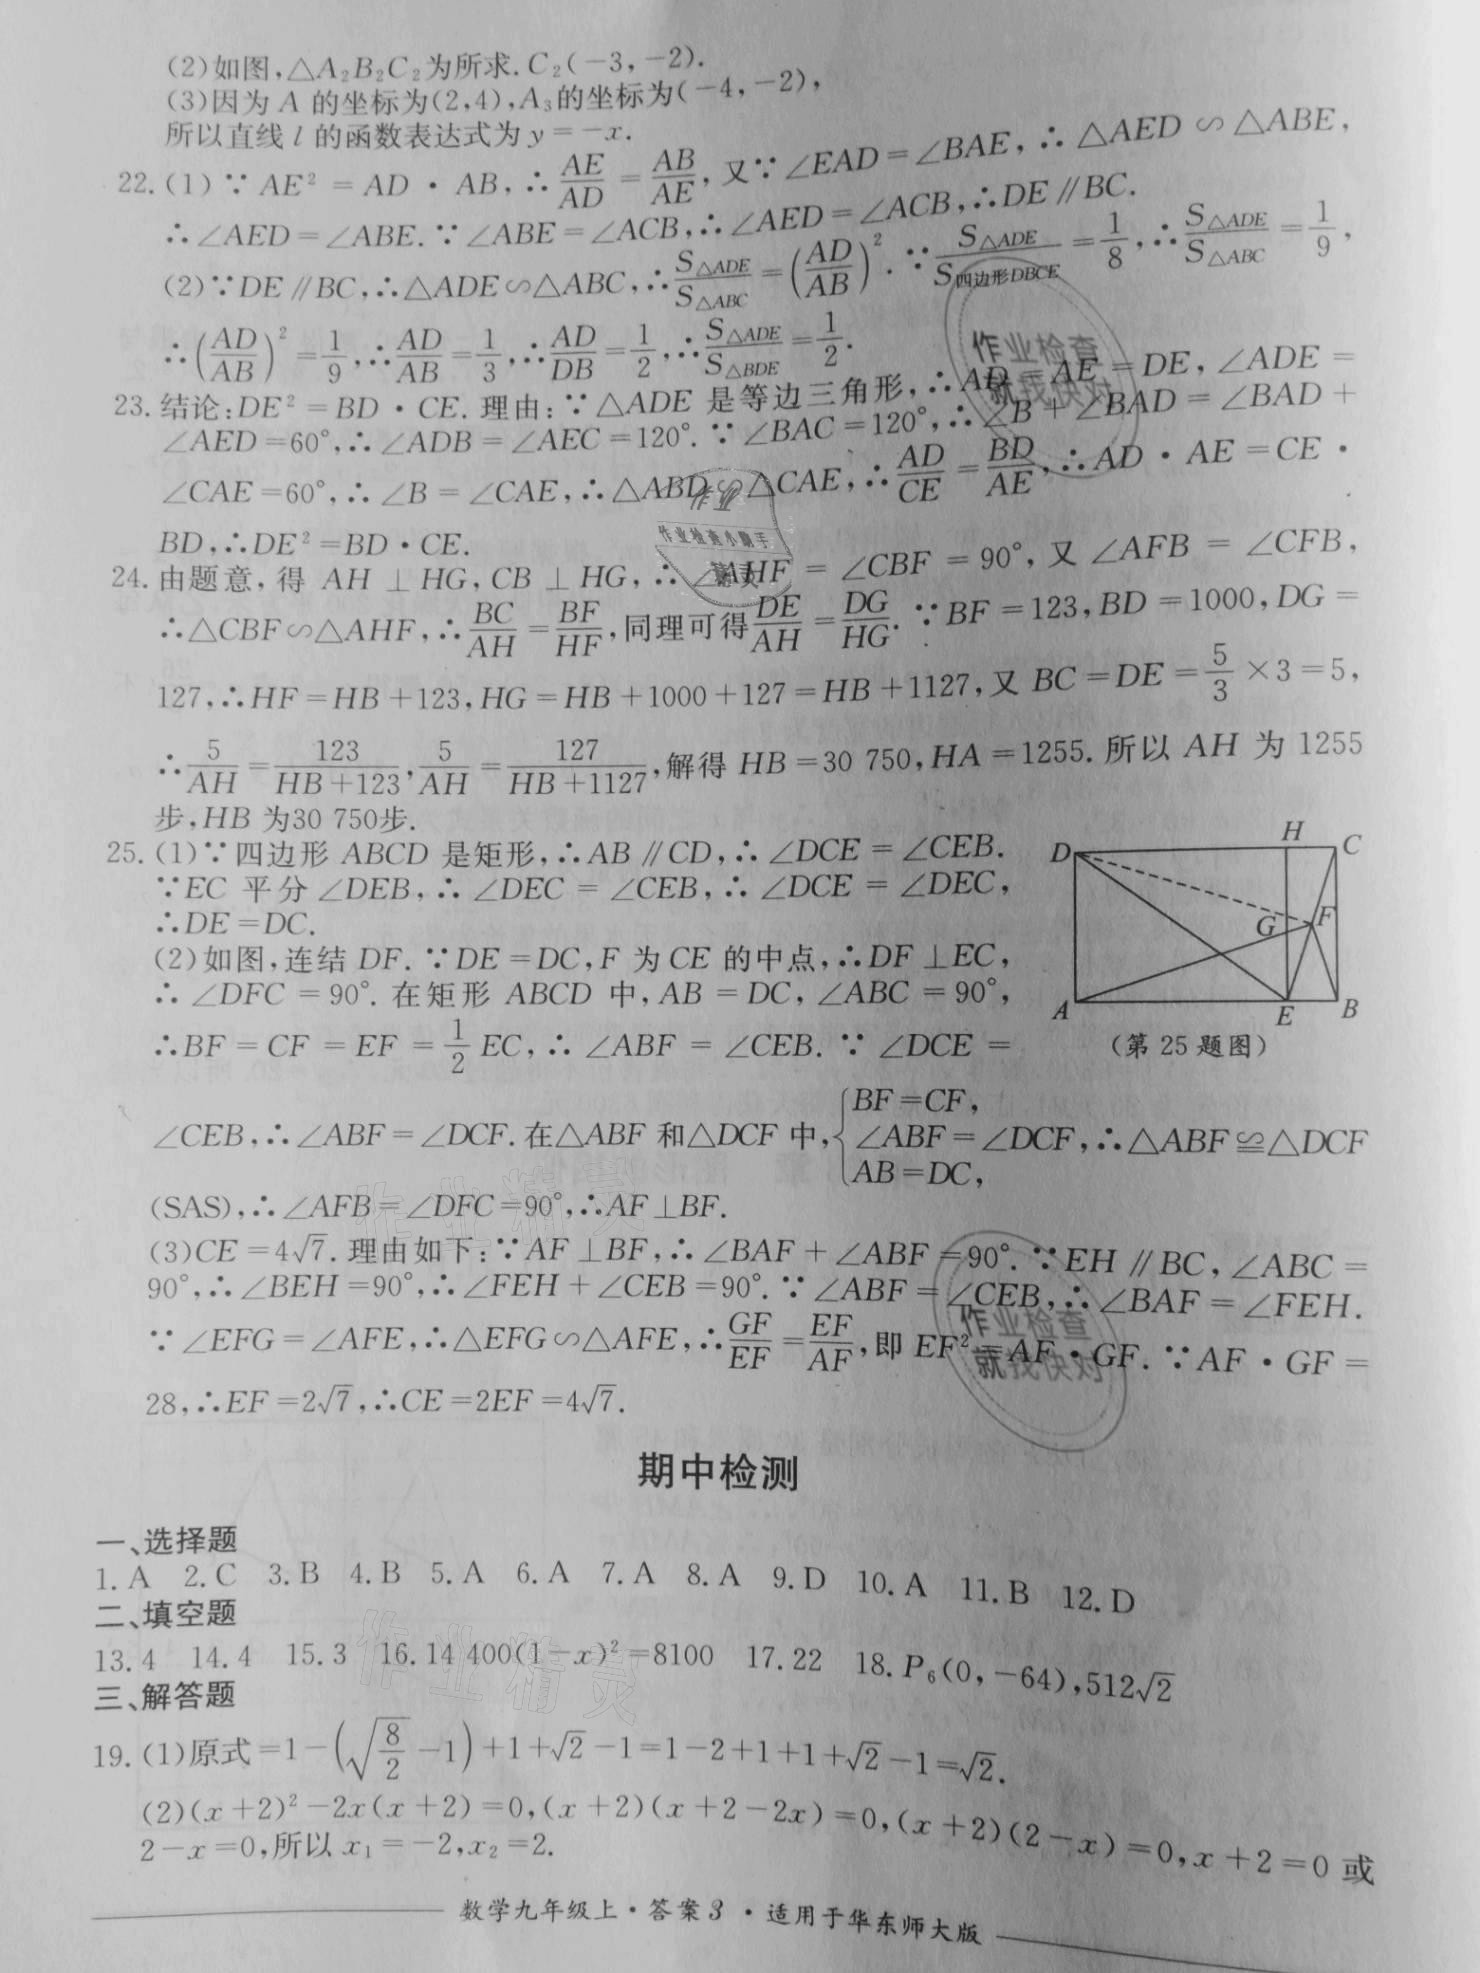 (2)如图,△A₂B₂C₂为所求. C₂(-3,-2).
(3)因为 A 的坐标为(2,4),A₃的坐标为(-4,-2),
所以直线 l 的函数表达式为 y=-x.
22. (1)∵ AE²=AD·AB,∴AE/AD=AB/AE,又∵∠EAD=∠BAE,∴△AED∽△ABE,
∴∠AED=∠ABE.∵∠ABE=∠ACB,∴∠AED=∠ACB,∴DE∥BC.
(2)∵DE∥BC,∴△ADE∽△ABC,∴S△ADE/S△ABC=(AD/AB)².∵S△ADE/S四边形DBCE=1/8,∴S△ADE/S△ABC=1/9,
∴(AD/AB)²=1/9,∴AD/AB=1/3,∴AD/DB=1/2,∴S△ADE/S△BDE=1/2.
23. 结论:DE²=BD·CE. 理由:∵△ADE 是等边三角形,∴AD=AE=DE,∠ADE=
∠AED=60°,∴∠ADB=∠AEC=120°.∵∠BAC=120°,∴∠B+∠BAD=∠BAD+
∠CAE=60°,∴∠B=∠CAE,∴△ABD∽△CAE,∴AD/CE=BD/AE,∴AD·AE=CE·
BD,∴DE²=BD·CE.
24. 由题意,得 AH⊥HG,CB⊥HG,∴∠AHF=∠CBF=90°,又∠AFB=∠CFB,
∴△CBF∽△AHF,∴BC/AH=BF/HF,同理可得DE/AH=DG/HG.∵BF=123,BD=1000,DG=
127,∴HF=HB+123,HG=HB+1000+127=HB+1127,又 BC=DE=5/3×3=5,
∴5/AH=123/(HB+123),5/AH=127/(HB+1127),解得 HB=30 750,HA=1255. 所以 AH 为 1255
步,HB 为30 750步.
25. (1)∵四边形 ABCD 是矩形,∴AB∥CD,∴∠DCE=∠CEB.
∵EC 平分∠DEB,∴∠DEC=∠CEB,∴∠DCE=∠DEC,
∴DE=DC.
(2)如图,连结 DF.∵DE=DC,F 为 CE 的中点,∴DF⊥EC,
∴∠DFC=90°. 在矩形 ABCD 中,AB=DC,∠ABC=90°,
∴BF=CF=EF=1/2 EC,∴∠ABF=∠CEB.∵∠DCE=
D H C
G F
A E B
(第 25 题图)
∠CEB,∴∠ABF=∠DCF. 在△ABF 和△DCF 中,{BF=CF,
∠ABF=∠DCF,∴△ABF≌△DCF
AB=DC,
(SAS),∴∠AFB=∠DFC=90°,∴AF⊥BF.
(3)CE=4√7. 理由如下:∵AF⊥BF,∴∠BAF+∠ABF=90°.∵EH∥BC,∠ABC=
90°,∴∠BEH=90°,∴∠FEH+∠CEB=90°.∵∠ABF=∠CEB,∴∠BAF=∠FEH.
∵∠EFG=∠AFE,∴△EFG∽△AFE,∴GF/EF=EF/AF,即 EF²=AF·GF.∵AF·GF=
28,∴EF=2√7,∴CE=2EF=4√7.
期中检测
一、选择题
1. A 2. C 3. B 4. B 5. A 6. A 7. A 8. A 9. D 10. A 11. B 12. D
二、填空题
13. 4 14. 4 15. 3 16. 14 400(1-x)²=8100 17. 22 18. P₆(0,-64),512√2
三、解答题
19. (1)原式=1-(√(8/2)-1)+1+√2-1=1-2+1+1+√2-1=√2.
(2)(x+2)²-2x(x+2)=0,(x+2)(x+2-2x)=0,(x+2)(2-x)=0,x+2=0 或
2-x=0,所以 x₁=-2,x₂=2.
数学九年级上·答案3·适用于华东师大版
作业检查
就找快对
作业检查小助手
作业精灵
作业检查
就找快对
作业精灵